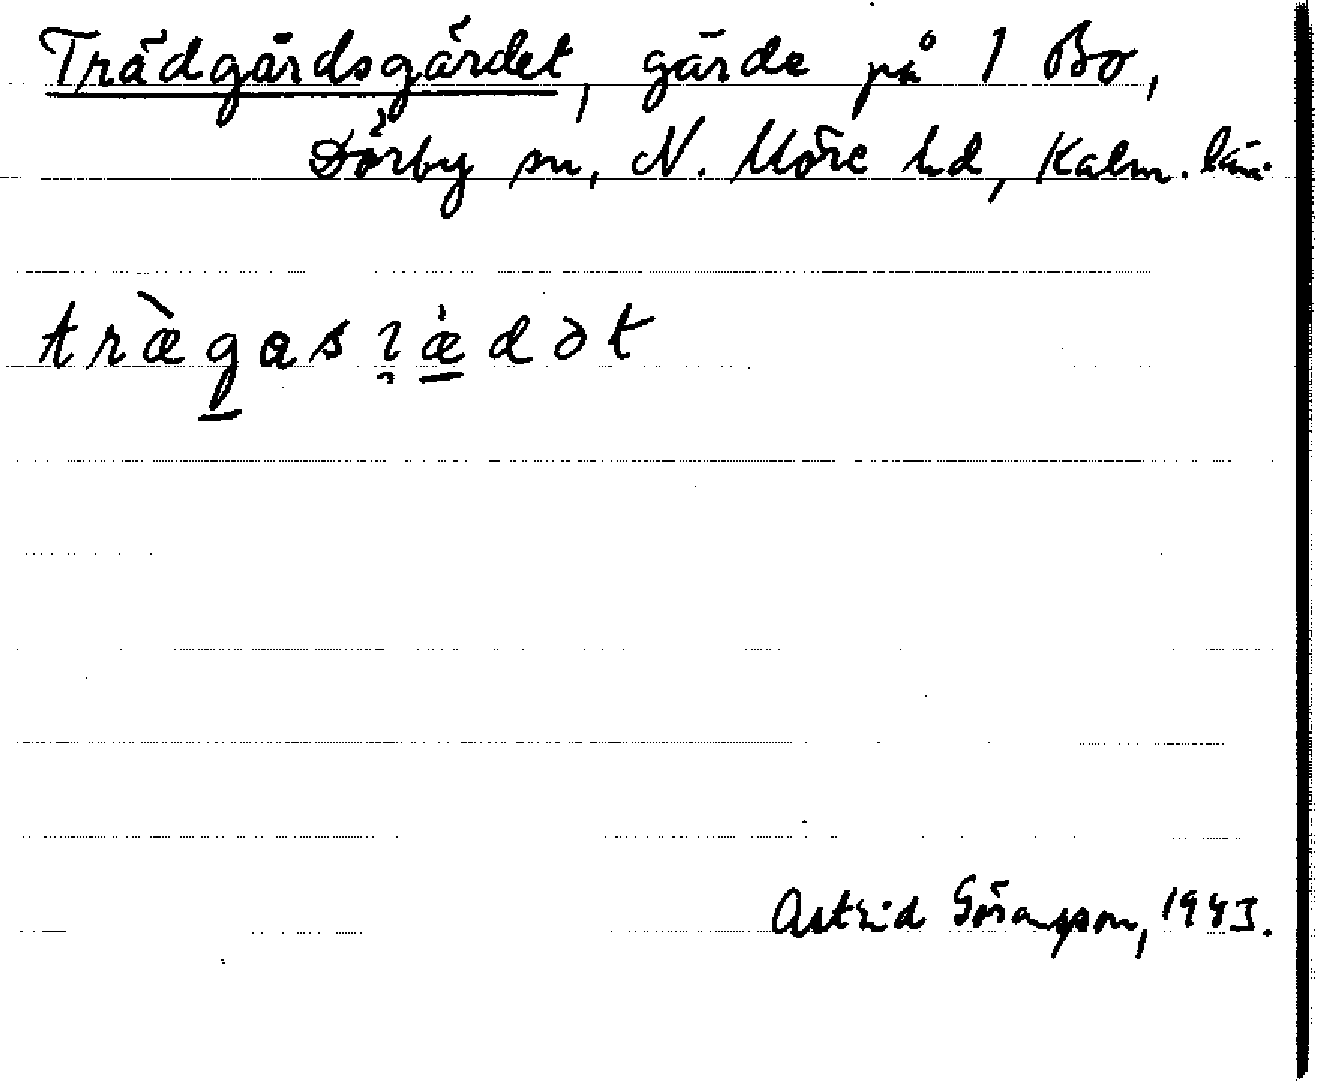 Trädgårdsgärdet, gärde på 1 Bo,
Dörby sn, N. Möre hd, Kalm. län.
Astrid Göransson, 1943.